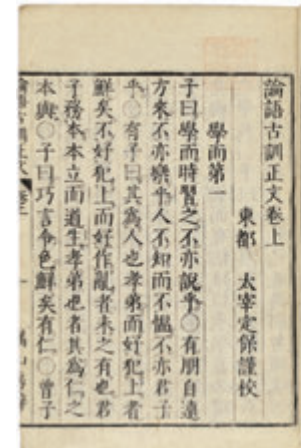 論語古訓正文卷上
東都　太宰定保謹校
學而第一
子曰學而時習之不亦說乎○有朋自遠
方來不亦樂乎人不知而不慍不亦君子
乎○有子曰其爲人也孝弟而好犯上者
鮮矣不好犯上而好作亂者未之有也君
子務本本立而道生孝弟也者其爲仁之
本與○子曰巧言令色鮮矣有仁○曾子
論語古訓正文